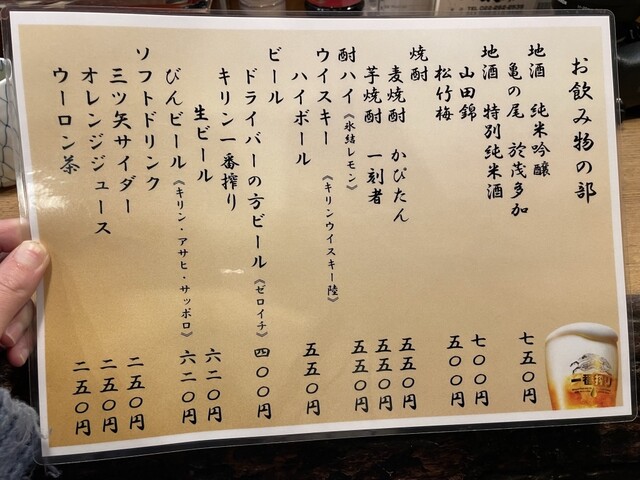 お飲み物の部
地酒 純米吟醸
亀の尾 於茂多加 七五〇円
地酒 特別純米酒
山田錦 七〇〇円
松竹梅 五〇〇円
焼酎
麦焼酎 かぴたん 五五〇円
芋焼酎 一刻者 五五〇円
酎ハイ《氷結レモン》 五五〇円
ウイスキー《キリンウイスキー陸》
ハイボール 五五〇円
ビール
ドライバーの方ビール《ゼロイチ》 四〇〇円
キリン一番搾り
生ビール 六二〇円
びんビール《キリン・アサヒ・サッポロ》 六二〇円
ソフトドリンク
三ツ矢サイダー 二五〇円
オレンジジュース 二五〇円
ウーロン茶 二五〇円
一番搾り